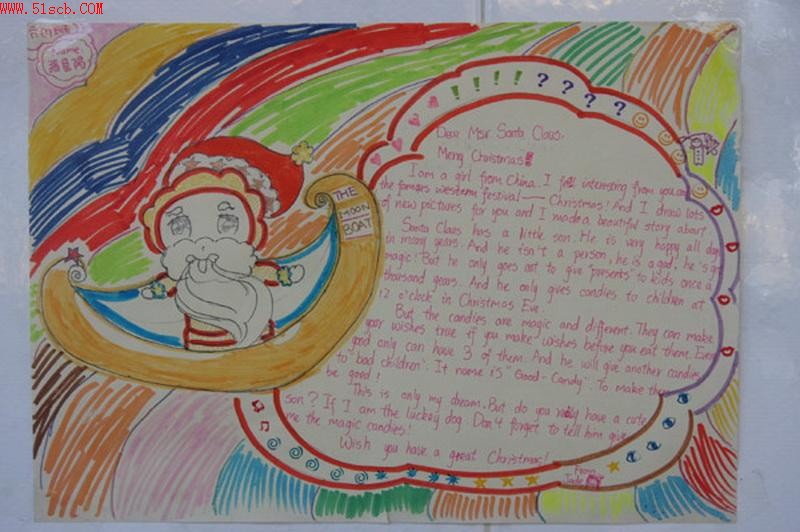 www.51scb.com
Name
THE
MOON
BOAT
!!!!????
Dear Msr Santa Claus,
Merry Christmas!
I am a girl from China. I fell interesting from you and
the famous western festival — Christmas! And I draw lots
of new pictures for you and I made a beautiful story about
Santa Claus has a little son. He is very happy all day
in many years. And he isn't a person, he is a god, he's got
magic! But he only goes out to give "presents" to kids once a
thousand years. And he only gives candies to children at
12 o'clock in Christmas Eve.
But the candies are magic and different. They can make
your wishes true if you make wishes before you eat them. Even
good only can have 3 of them. And he will give another candies
to "bad children". It name is "Good-Candy". To make them
be good!
This is only my dream. But do you really have a cute
son? If I am the luckey dog. Don't forget to tell him give
me the magic candies!
Wish you have a great Christmas!
From
Jade